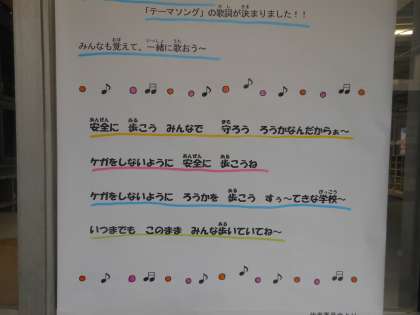 「テーマソング」の歌詞が決まりました！！
みんなも覚えて、一緒に歌おう～
安全に 歩こう みんなで 守ろう ろうかなんだからぁ～
ケガをしないように 安全に 歩こうね
ケガをしないように ろうかを 歩こう すぅ～てきな学校～
いつまでも このまま みんな歩いていてね～